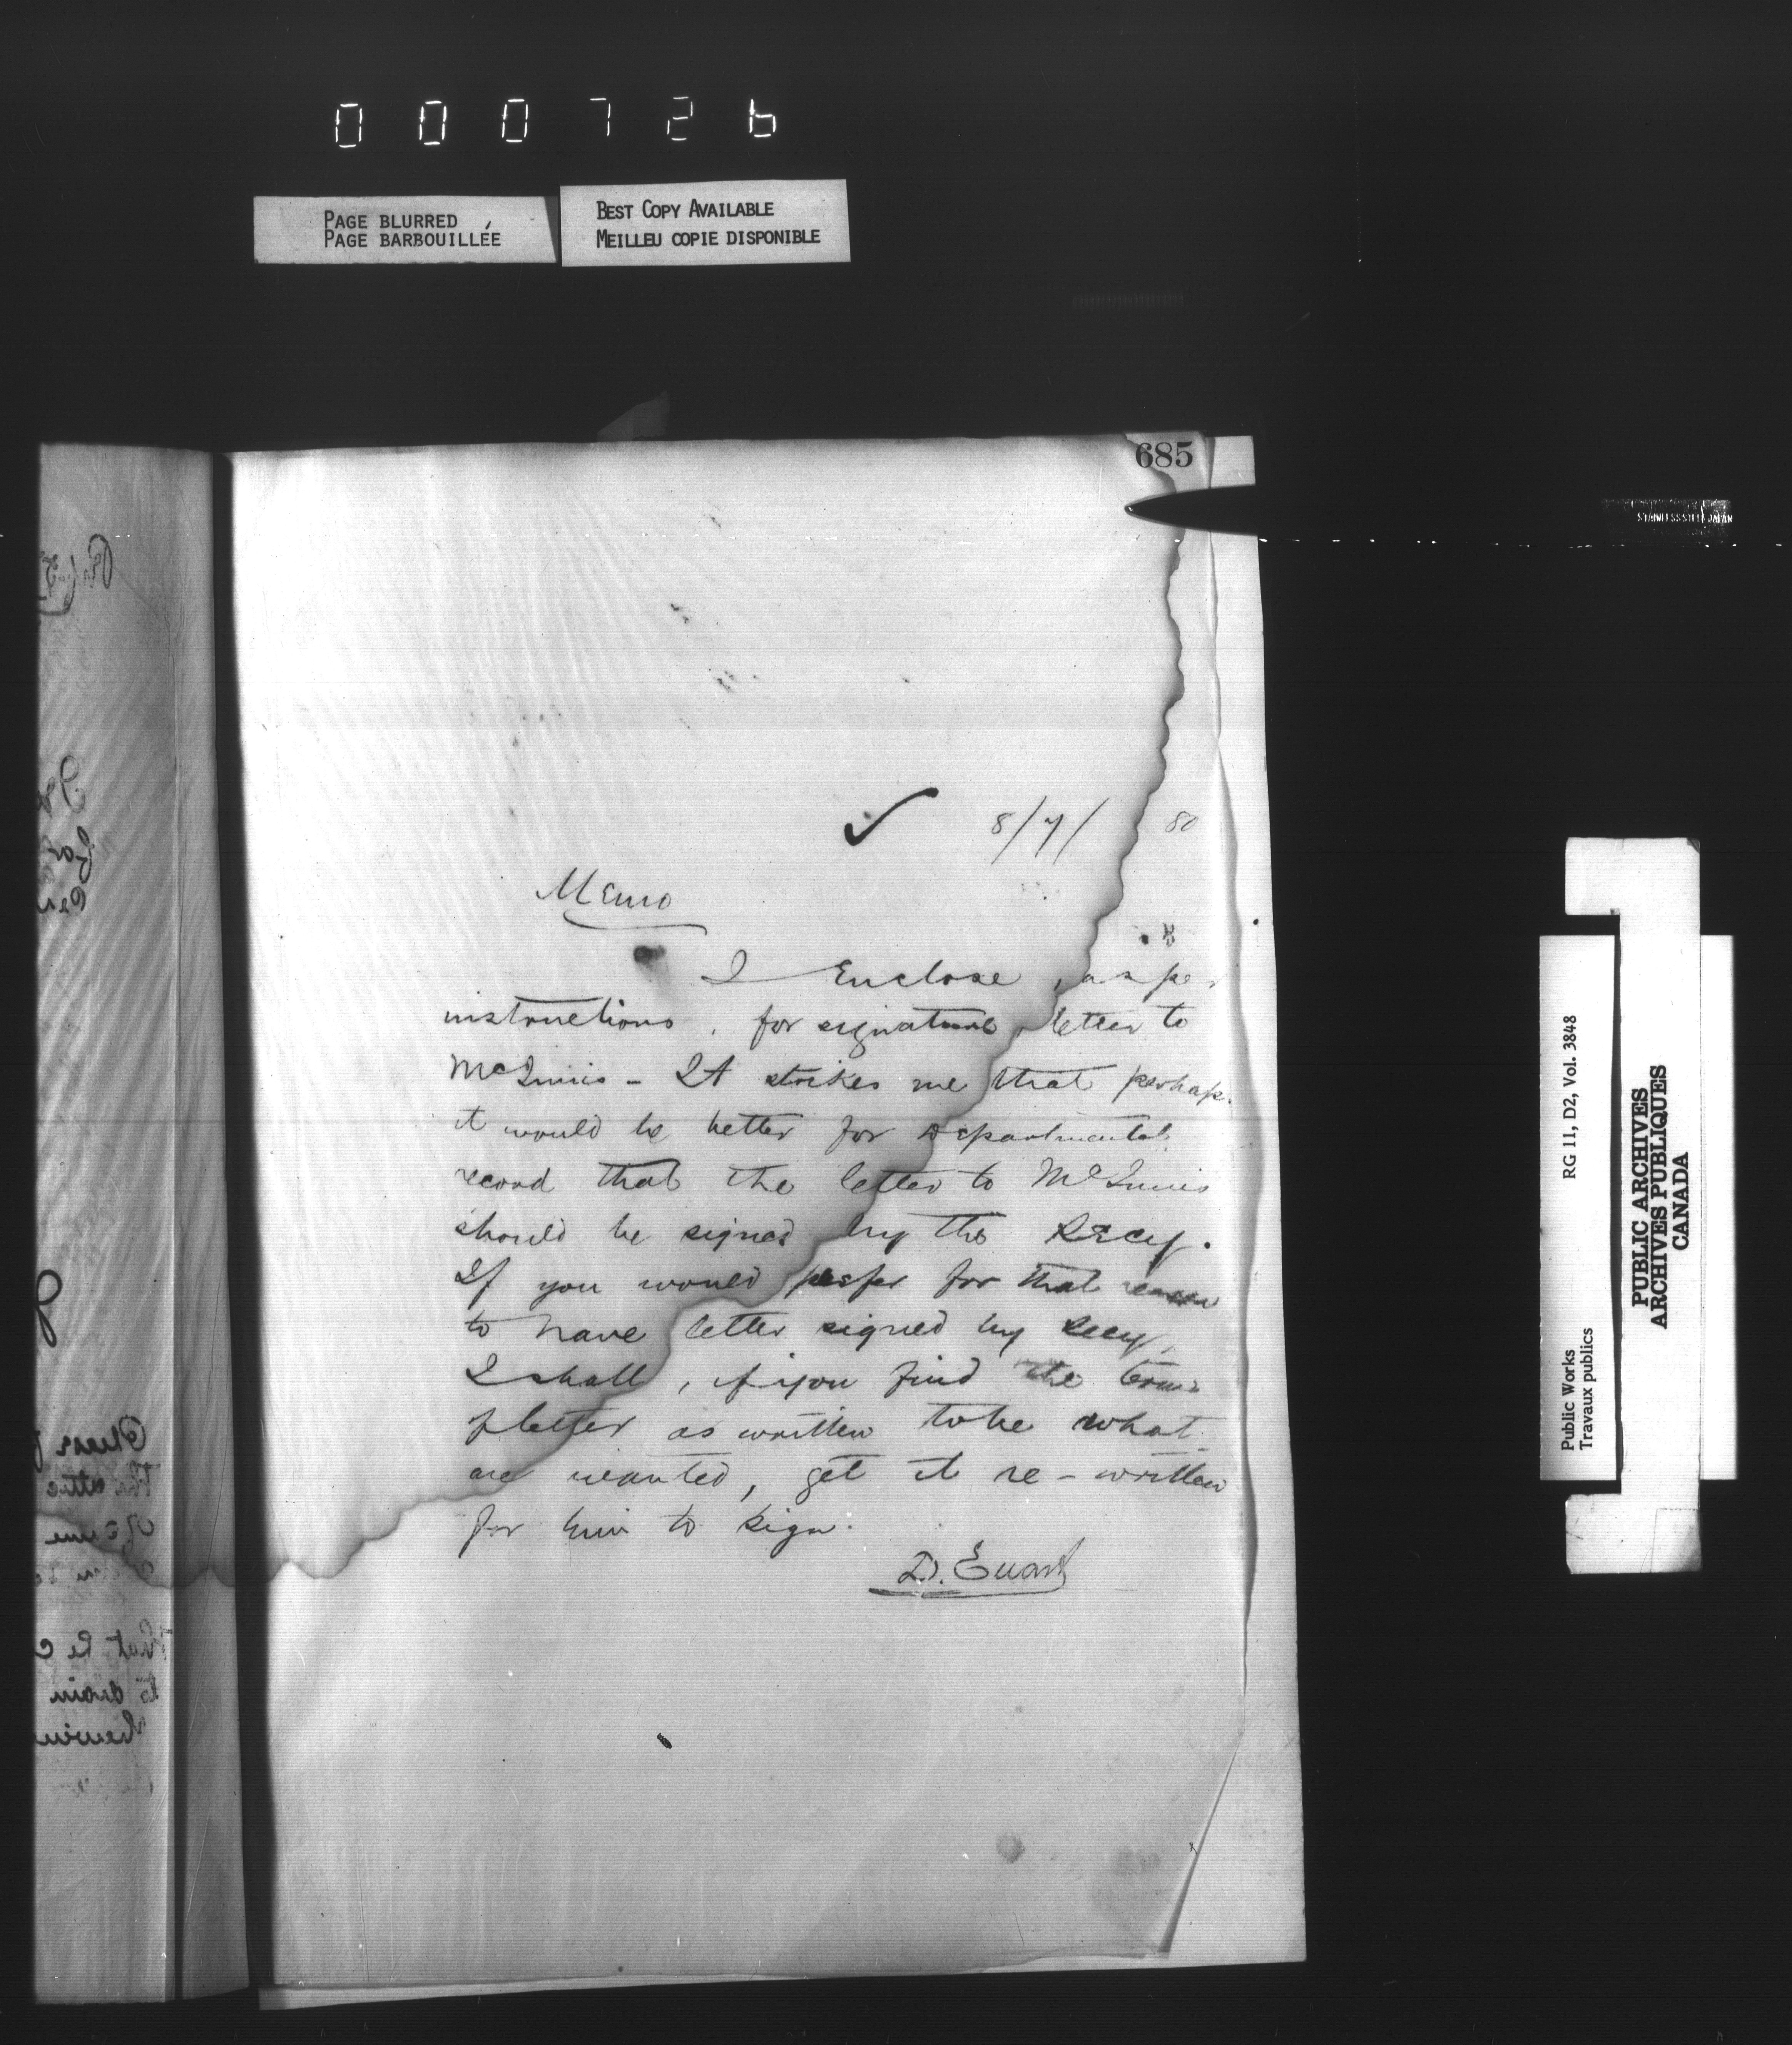 000726
PAGE BLURRED
PAGE BARBOUILLÉE
BEST COPY AVAILABLE
MEILLEU COPIE DISPONIBLE
685
STAINLESS STEEL JAPAN
✓ 8/7/80
Memo
I Enclose, as per
instructions, for signature, letter to
McInnis - It strikes me that perhaps
it would be better for Departmental
record that the letter to McInnis
should be signed by the Secy.
If you would prefer for that reason
to have letter signed by Secy,
I shall, if you find the terms
of letter as written to be what
are wanted, get it re-written
for him to sign.
D. Ewart
RG 11, D2, Vol. 3848
Public Works
Travaux publics
PUBLIC ARCHIVES
ARCHIVES PUBLIQUES
CANADA